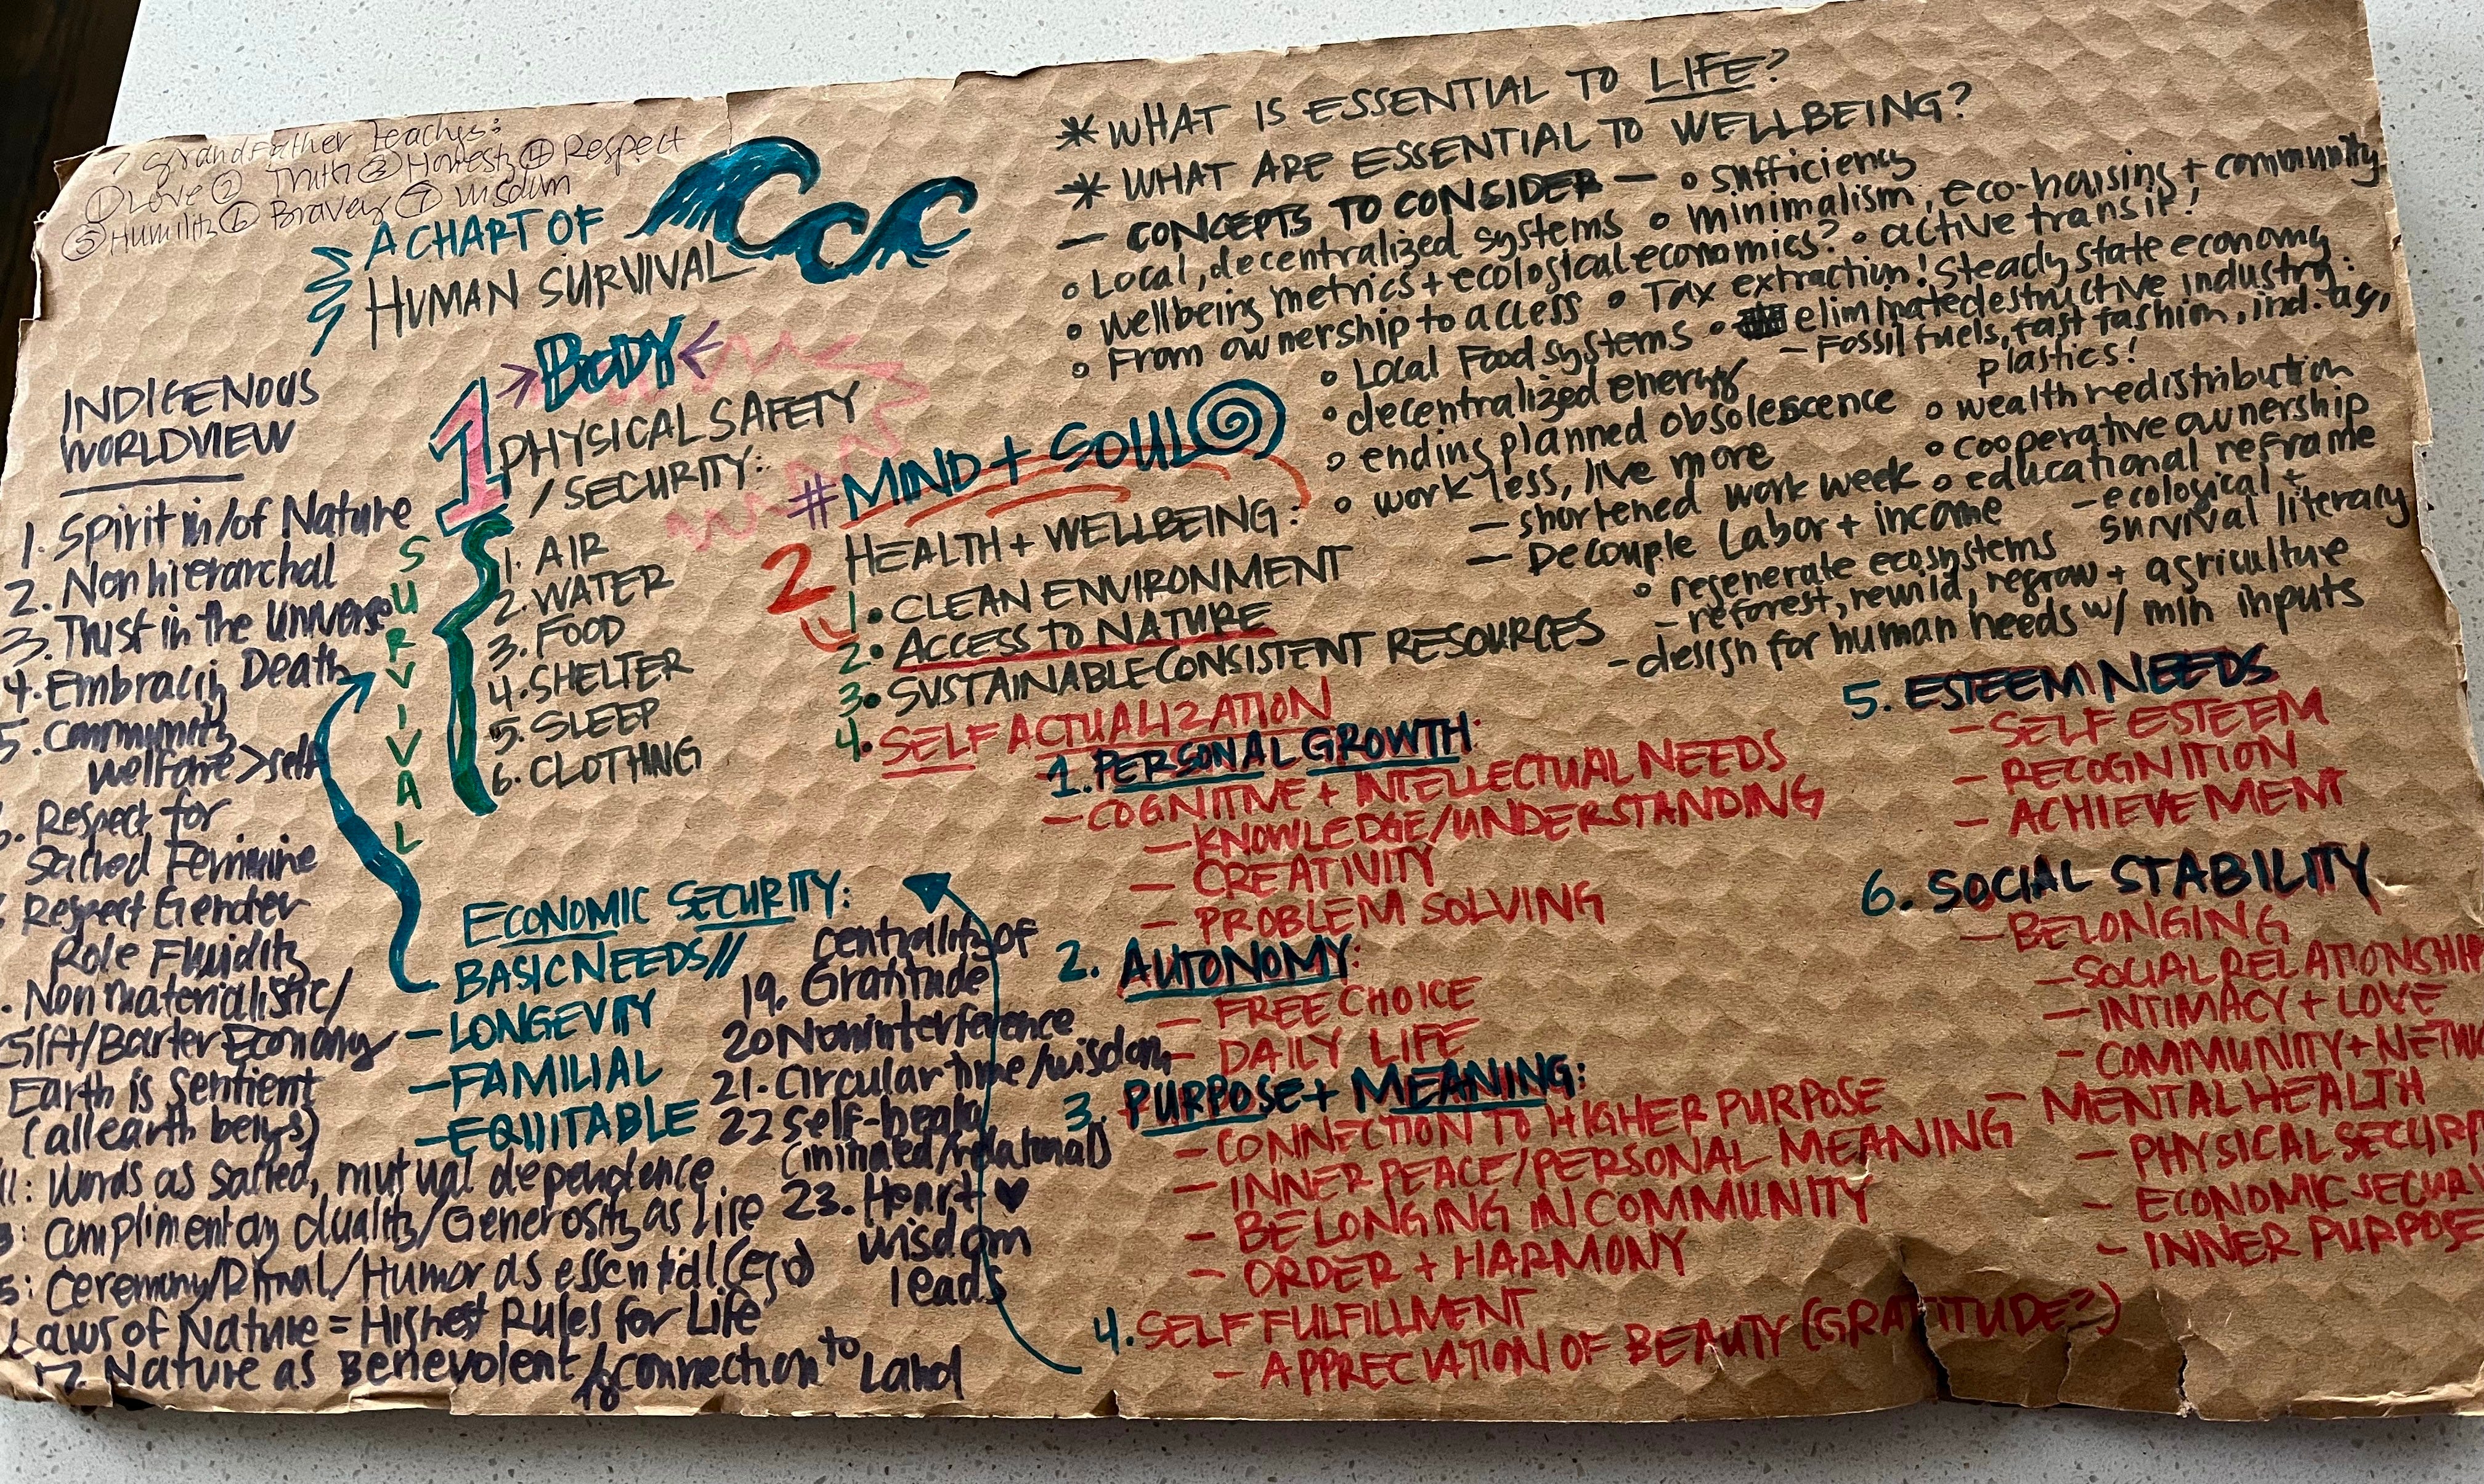 7 Grandfather teachigs:
① Love ② Truth ③ Honesty ④ Respect
⑤ Humility ⑥ Bravery ⑦ Wisdom
A CHART OF
HUMAN SURVIVAL
INDIGENOUS
WORLDVIEW
1. Spirit in/of Nature
2. Non hierarchal
3. Trust in the Universe
4. Embracing Death
5. Community
welfare > self
6. Respect for
sacred Feminine
Respect Gender
Role Fluidity
Non materialistic/
Gift/Barter Economy
Earth is sentient
(all earth beings)
11: Words as sacred, mutual dependence
Complimentary duality/Generosity as life
Ceremony/Ritual/Humor as essential (ego)
Laws of Nature = Highest Rules for Life
17. Nature as Benevolent / 18 connection to Land
centrality of
19. Gratitude
20 Noninterference
21. Circular time/wisdom
22 Self-healing
23. Heart ♥
wisdom
leads
1 → BODY ←
PHYSICAL SAFETY
/SECURITY:
SURVIVAL
1. AIR
2. WATER
3. FOOD
4. SHELTER
5. SLEEP
6. CLOTHING
ECONOMIC SECURITY:
BASIC NEEDS//
- LONGEVITY
- FAMILIAL
- EQUITABLE
# MIND + SOUL
2 HEALTH + WELLBEING:
1. CLEAN ENVIRONMENT
2. ACCESS TO NATURE
3. SUSTAINABLE CONSISTENT RESOURCES
4. SELF ACTUALIZATION
1. PERSONAL GROWTH:
- COGNITIVE + INTELLECTUAL NEEDS
- KNOWLEDGE/UNDERSTANDING
- CREATIVITY
- PROBLEM SOLVING
2. AUTONOMY:
- FREE CHOICE
- DAILY LIFE
3. PURPOSE + MEANING:
- CONNECTION TO HIGHER PURPOSE
- INNER PEACE/PERSONAL MEANING
- BELONGING IN COMMUNITY
- ORDER + HARMONY
4. SELF FULFILLMENT
- APPRECIATION OF BEAUTY (GRATITUDE?)
5. ESTEEM NEEDS
- SELF ESTEEM
- RECOGNITION
- ACHIEVEMENT
6. SOCIAL STABILITY
- BELONGING
- SOCIAL RELATIONSHIP
- INTIMACY + LOVE
- COMMUNITY + NETW
- MENTAL HEALTH
- PHYSICAL SECUR
- ECONOMIC SECUR
- INNER PURPOSE
* WHAT IS ESSENTIAL TO LIFE?
* WHAT ARE ESSENTIAL TO WELLBEING?
— CONCEPTS TO CONSIDER — ∘ sufficiency
∘ Local, decentralized systems ∘ minimalism, eco-housing + community
∘ wellbeing metrics + ecological economics? ∘ active transit!
∘ From ownership to access ∘ Tax extraction! Steady state economy
∘ Local Food systems ∘ eliminate destructive industry:
- Fossil fuels, fast fashion, ind. ag,
plastics!
∘ decentralized energy
∘ ending planned obsolescence ∘ wealth redistribution
∘ work less, live more ∘ cooperative ownership
— shortened work week ∘ educational reframe
— Decouple Labor + income - ecological +
survival literacy
∘ regenerate ecosystems
- reforest, rewild, regrow + agriculture
- design for human needs w/ min inputs